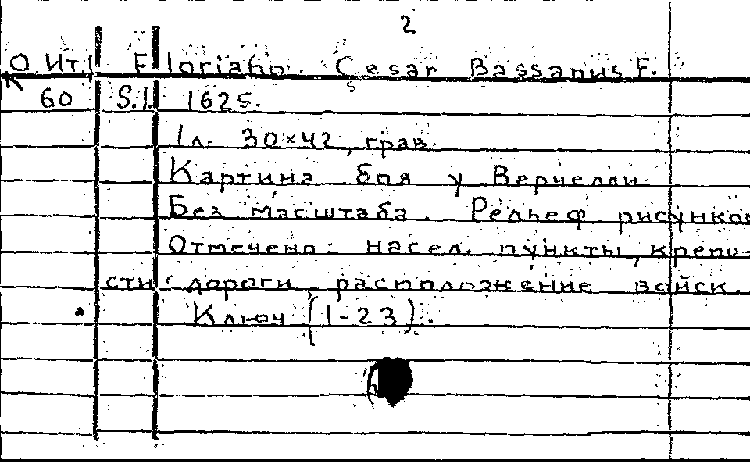 2
О Ит. Floriano. Cesar Bassanus F.
К 60 S.l. 1625.
1 л. 30×42, грав.
Картина боя у Верчелли
Без масштаба. Рельеф рисунком
Отмечено: насел. пункты, крепо-
сти, дороги, расположение войск.
Ключ (1-23).